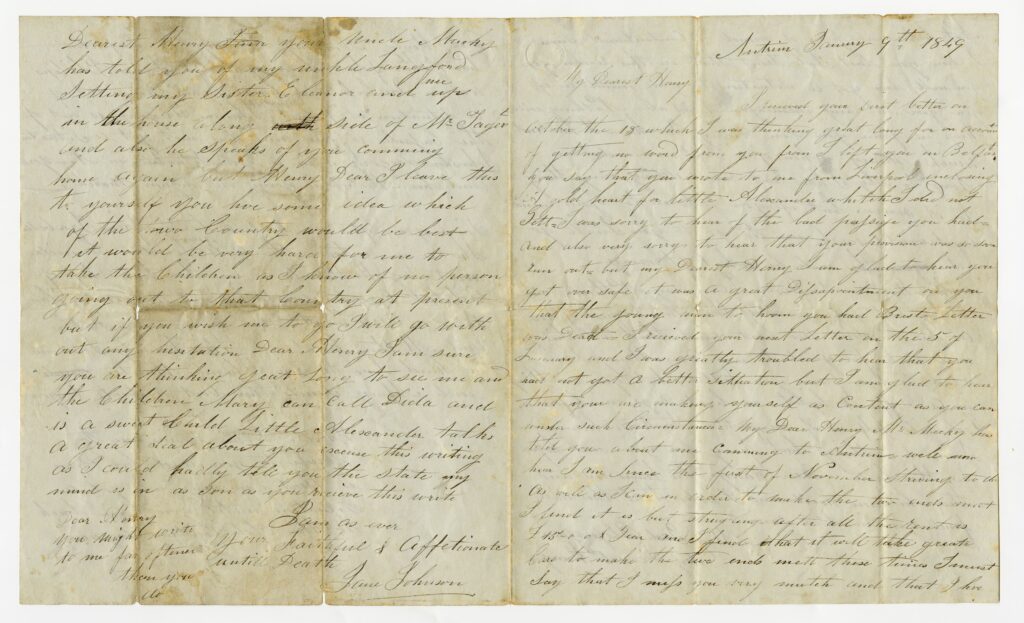 Antrim January 9th 1849
My Dearest Henry
I receved your first letter on
October the 18 which I was thinking great long for on account
of getting no word from you from I left you on Belfast
you say that you wrote to me from Liverpol inclosing
A gold heart for little Alexander whitch I did not
Get I was sorry to hear of the bad passige you had
And also very sorry to hear that your provision was so soon
run out but my Dearest Henry I am glad to hear you
got over safe it was a great Dissapointment on you
that the young man to hoom you had Letter
was Dead I received your next Letter on the 5 of
January and I was greatly troubled to hear that you
had not got A better Sittuation but I am glad to hear
that your are making yourself as Content as you can
under such Circumstances My Dear Henry Mr Mackey has
told you about me Comming to Antrim well now
hear I am since the first of November Striving to do
As well as I can in order to make the two ends meet
I find it is but strugling after all the Rent is
£15 0 0 A Year and I find that it will take great
Care to make the two ends meth these times I must
Say that I miss you very mutch and that I hve
Dearest Henry your Uncle Macky
has told you of my unkle Langford
Setting my Sister Eleanor and me up
in the house along side of Mr
and also he Speaks of you comming
home again but Henry Dear I leave this
to yourself you hve some idea which
of the two Country would be best
it would be very hard for me to
take the Children as I know of no person
going out to that Country at present
but if you wish me to go I will go with
out any hesitation Dear Henry I am sure
you are thinking great Long to see me and
the Children Mary can Call Dada and
is a sweet Child Little Alexander talks
a great deal about you excuse this writing
as I could hadly tell you the state my
mind is in as son as you recieve this write
I am as ever
Your Faithful & Affetionate
untill Death
Jane Johnson
Dear Henry
you might write
to me far oftener
then you
do